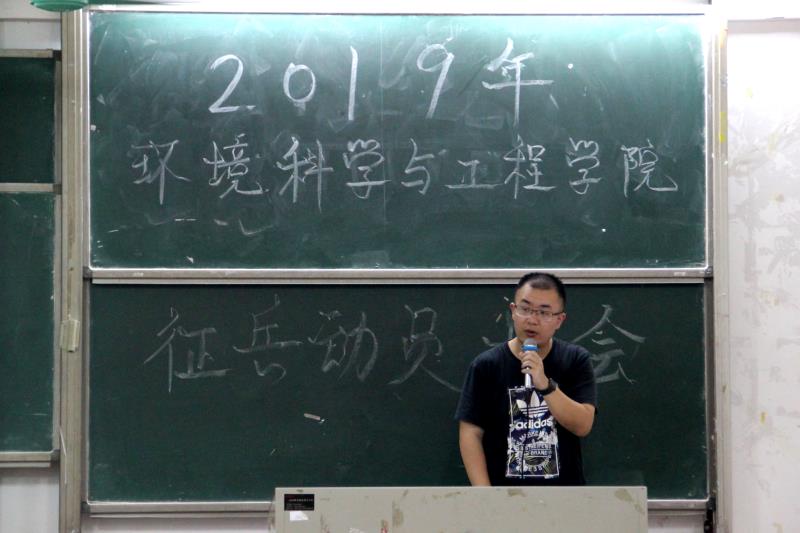 2019年
环境科学与工程学院
征兵动员 会
adidas
BRAND